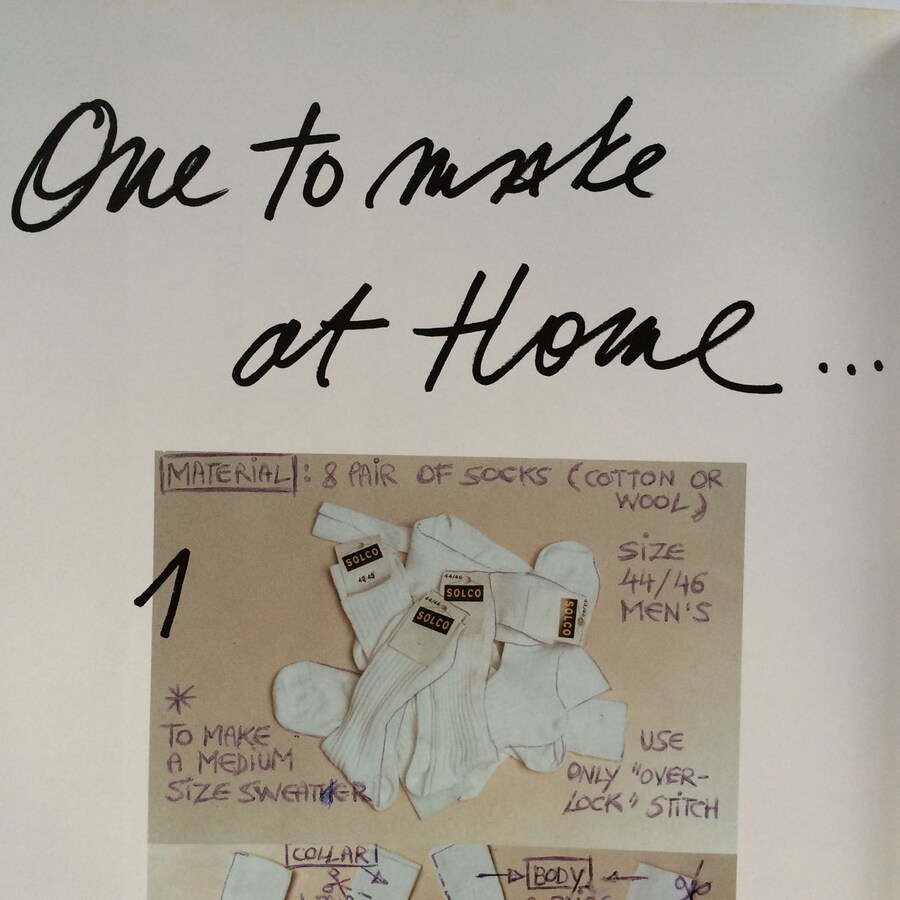 One to make
at Home...
MATERIAL : 8 PAIR OF SOCKS (COTTON OR
WOOL)
1
SIZE
44/46
MEN'S
SOLCO
44/46
SOLCO
44/46
SOLCO
SOLCO
*
TO MAKE
A MEDIUM
SIZE SWEATER
USE
ONLY "OVER-
LOCK" STITCH
COLLAR
BODY